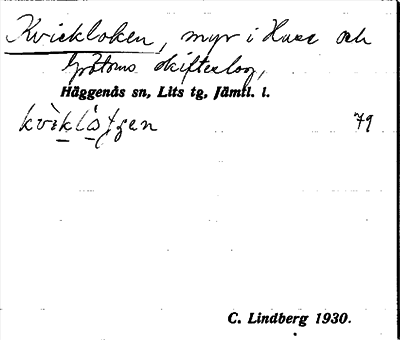 Kvickloken, myr i Huse och
Grötoms skifteslag,
Häggenås sn, Lits tg, Jämtl. l.
kvìklå̀tjen 79
C. Lindberg 1930.